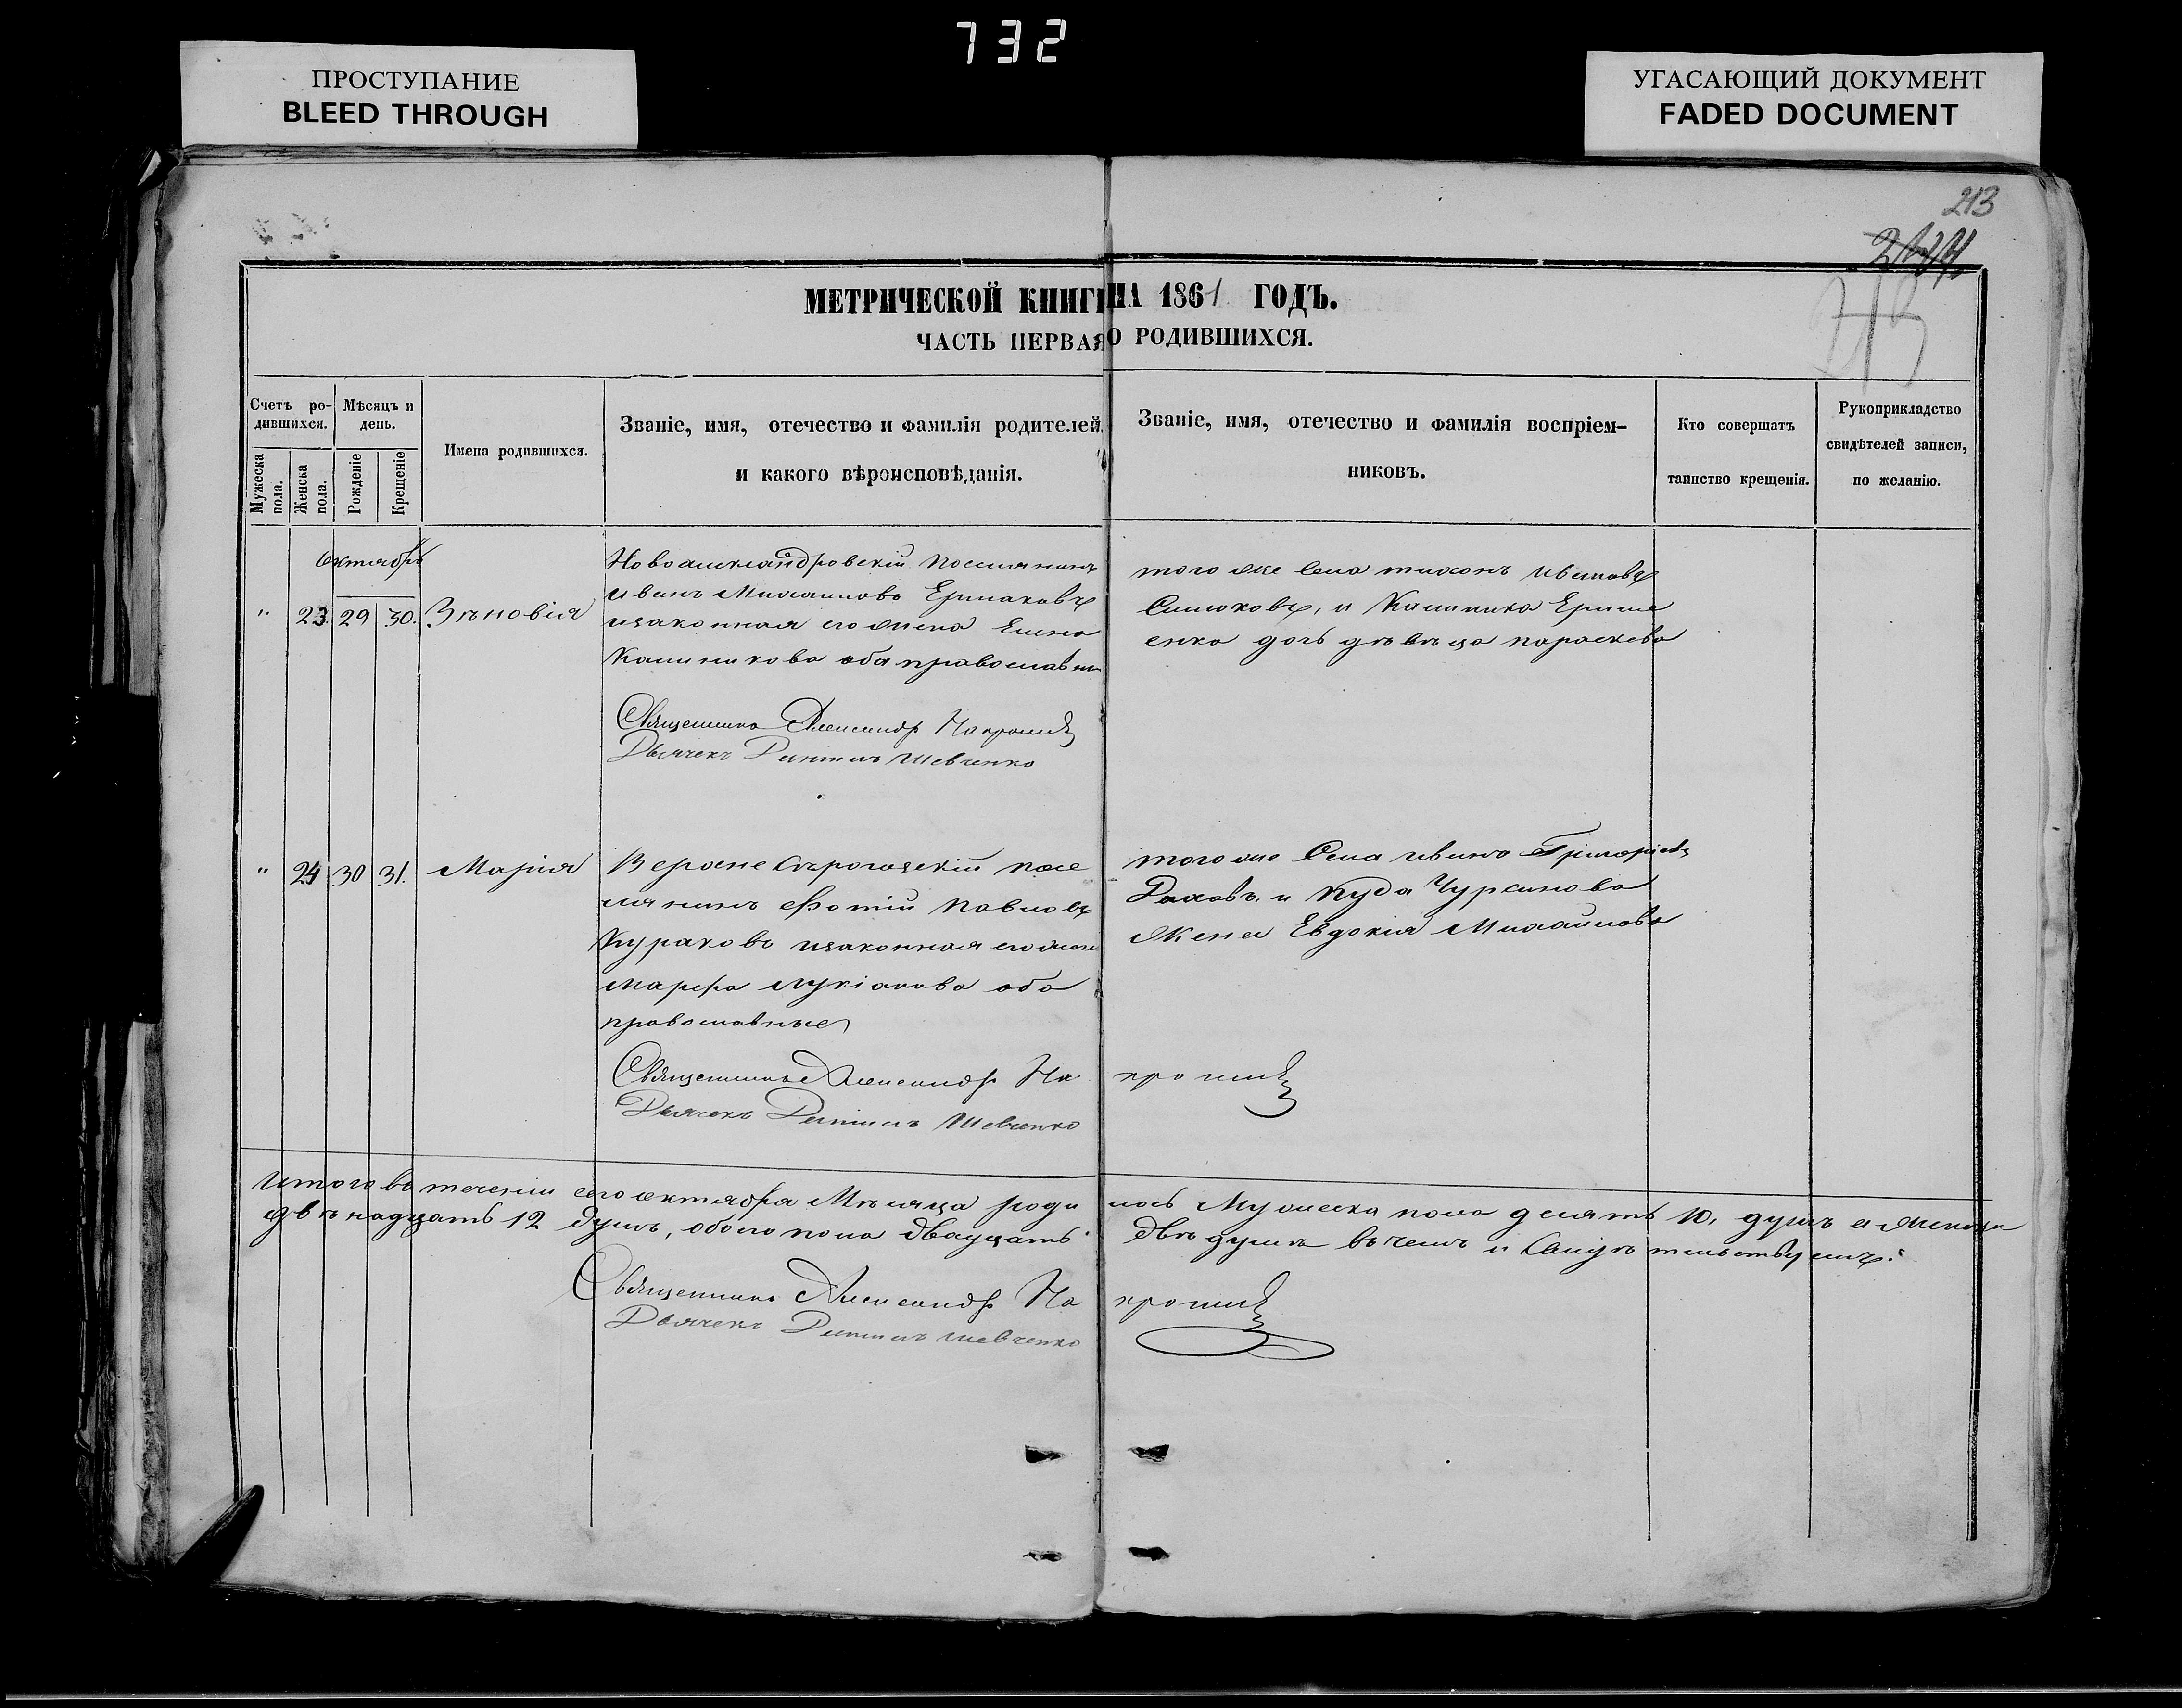 732
ПРОСТУПАНИЕ
BLEED THROUGH
УГАСАЮЩИЙ ДОКУМЕНТ
FADED DOCUMENT
213
МЕТРИЧЕСКОЙ КНИГИ НА 1861 ГОДЪ.
ЧАСТЬ ПЕРВАЯ О РОДИВШИХСЯ.
Счетъ ро-
дившихся.
Мужеска пола.
Женска пола.
Мѣсяцъ и
день.
Рожденіе
Крещеніе
Имена родившихся.
Званіе, имя, отечество и фамилія родителей,
и какого вѣроисповѣданія.
Званіе, имя, отечество и фамилія воспріем-
никовъ.
Кто совершатъ
таинство крещенія.
Рукоприкладство
свидѣтелей записи,
по желанію.
октябрь
" 23. 29 30. Зѣновія
Новоалександровскій поселянинъ
Иванъ Михаиловъ Ермаковъ
изаконная его жена Елена
Калиникова оба православны
того же села тихонъ Ивановъ
и Калиника Ерマ
енка дочь дѣвица параскева
Священникъ Александръ
Дьячекъ Шевченко
" 24 30 31. Марія
Верхне Сѣрогозскій посе
лянинъ Фотій Павловъ
Кураковъ изаконная его жена
Марфа Лукіанова оба
православные
того же Села иванъ Григоріевъ
и Чурсинова
Жена Евдокія Михаилова
Священникъ Александръ
Дьячекъ Шевченко
Итого въ теченіи сего октября Мѣсяца роди лось Мужеска пола десять 10, душъ а женска
двѣнадцать 12 душъ, обоего пола двадцать двѣ души въ чемъ и Свидѣтельствуемъ.
Священникъ Александръ
Дьячекъ Шевченко